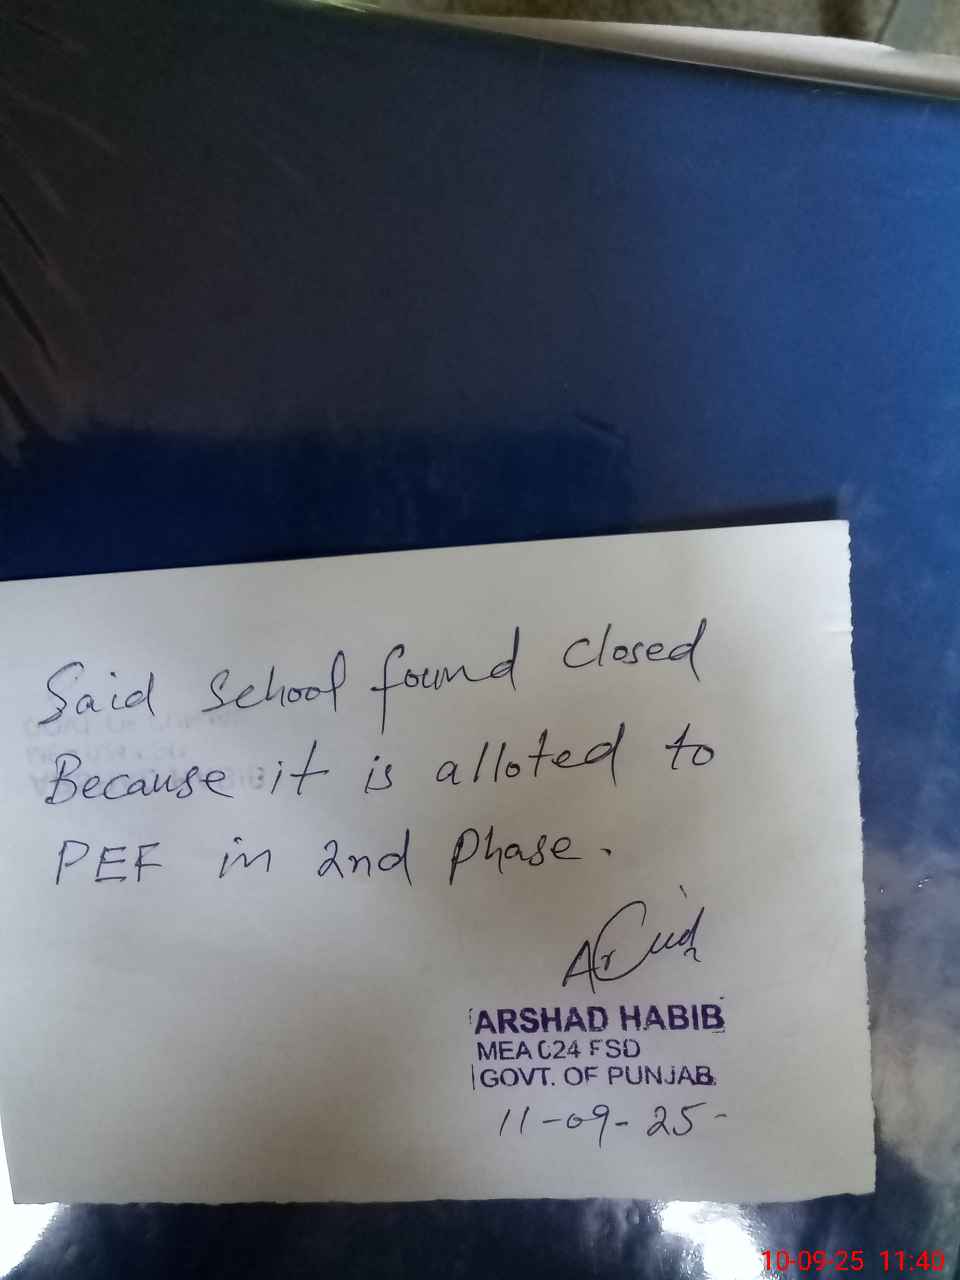 Said School found closed
Because it is alloted to
PEF in 2nd Phase.
ARSHAD HABIB
MEA 024 FSD
GOVT. OF PUNJAB
11-09-25-
10-09-25 11:40